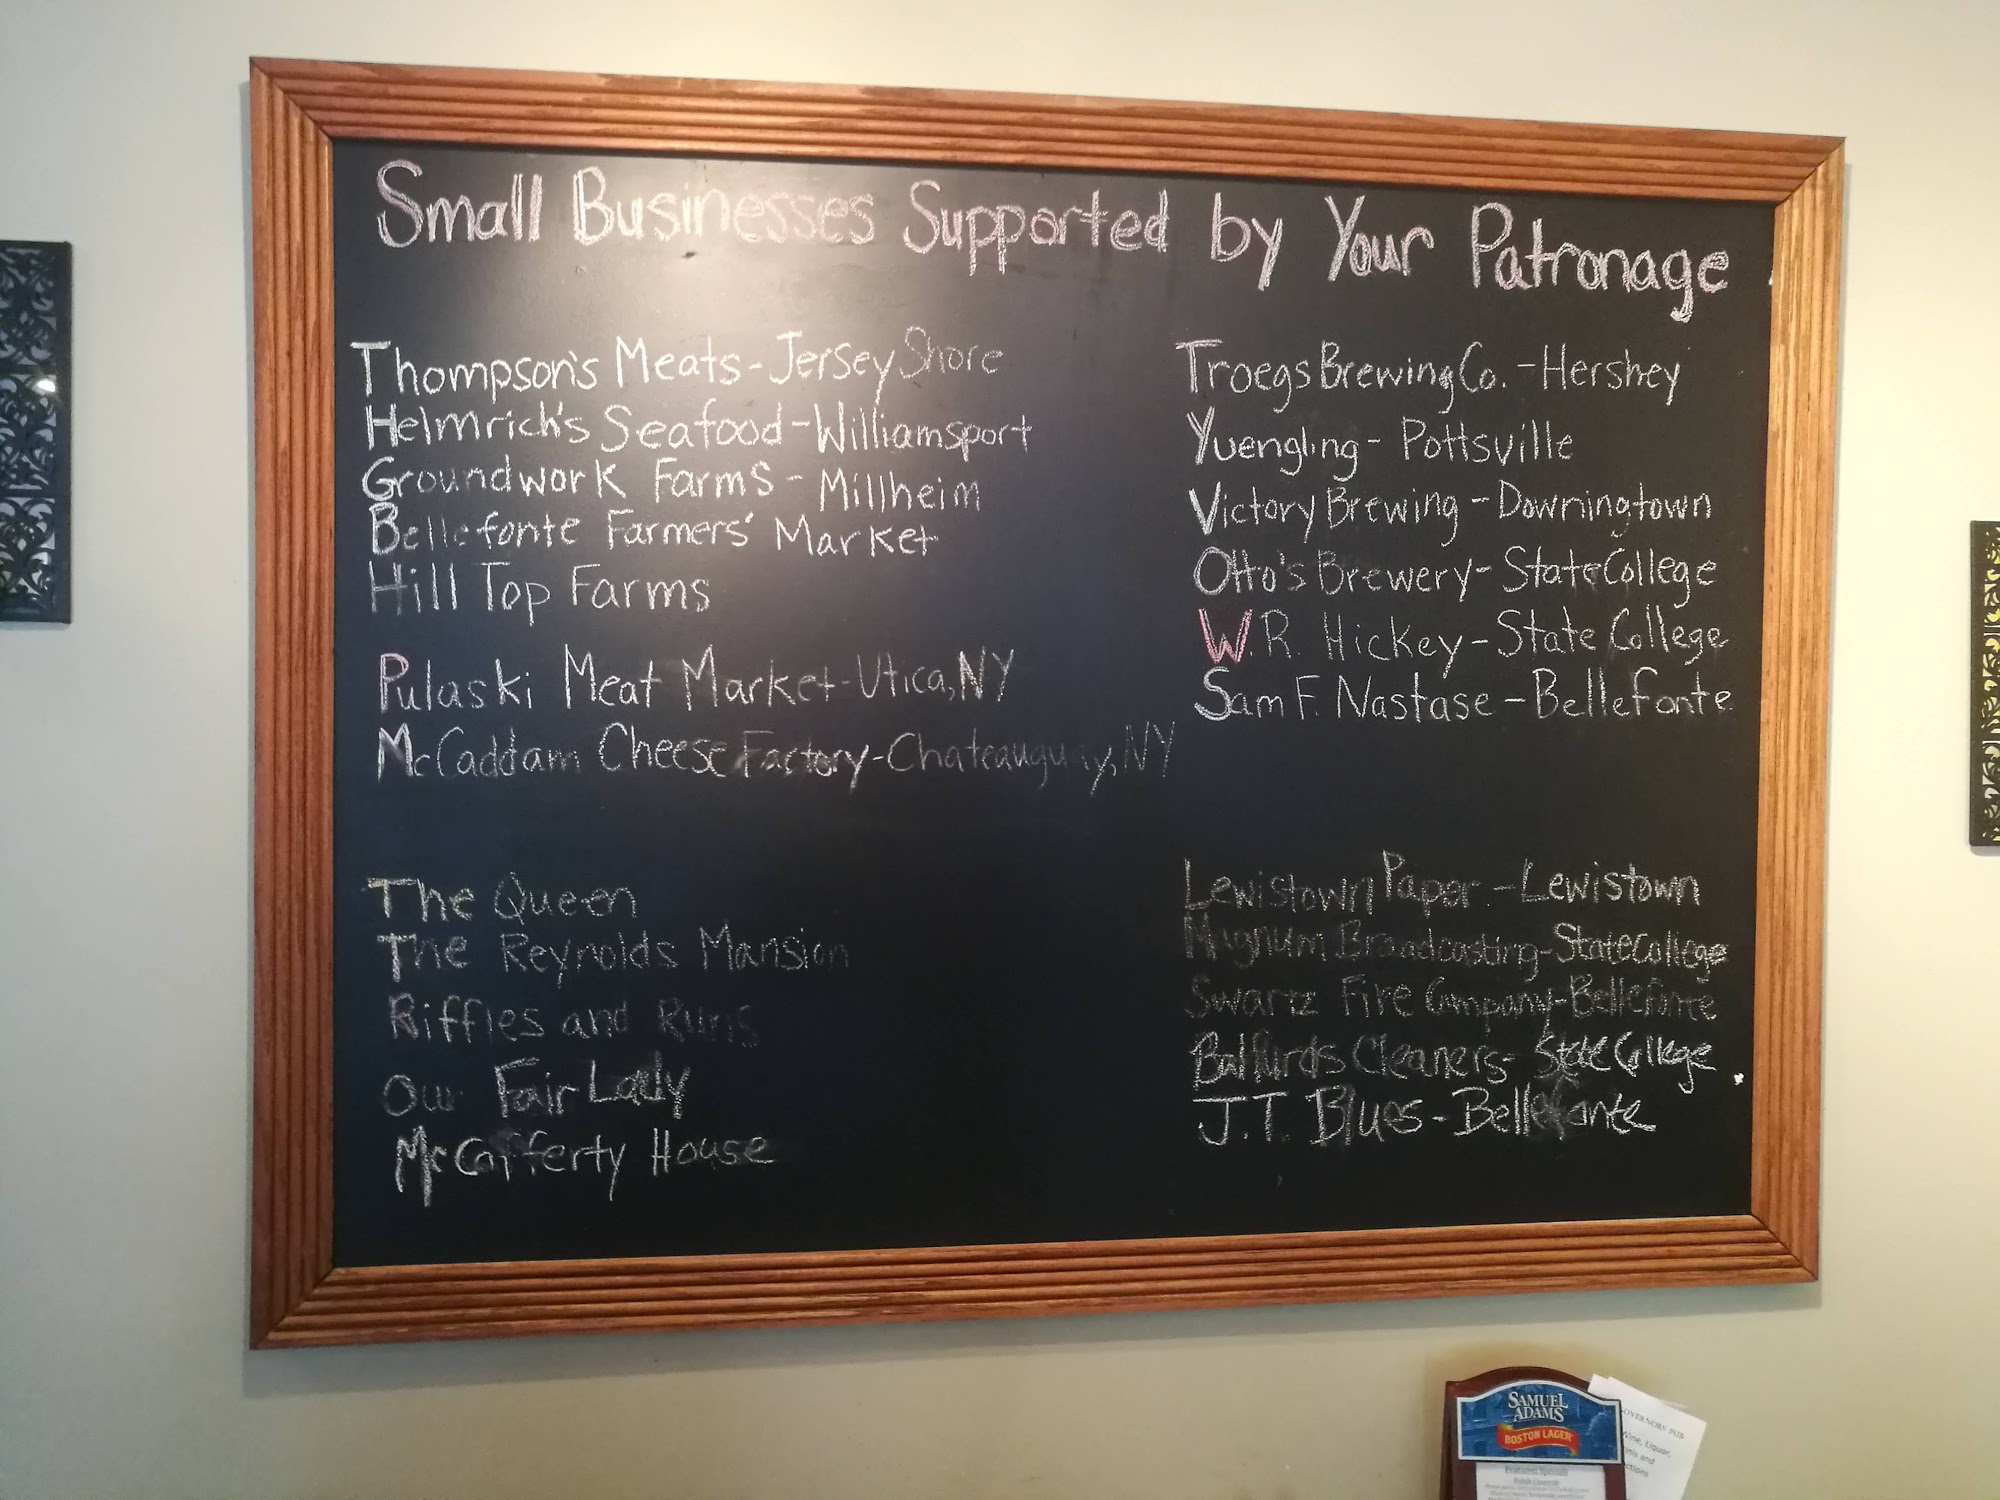 Small Businesses Supported by Your Patronage
Thompson's Meats - Jersey Shore
Helmrich's Seafood - Williamsport
Groundwork Farms - Millheim
Bellefonte Farmers' Market
Hill Top Farms
Pulaski Meat Market - Utica, NY
McCaddam Cheese Factory - Chateauguay, NY
The Queen
The Reynolds Mansion
Riffles and Runs
Our Fair Lady
McCafferty House
Troegs Brewing Co. - Hershey
Yuengling - Pottsville
Victory Brewing - Downingtown
Otto's Brewery - State College
W.R. Hickey - State College
Sam F. Nastase - Bellefonte
Lewistown Paper - Lewistown
Magnum Broadcasting - State College
Swartz Fire Company - Bellefonte
Balfurds Cleaners - State College
J.T. Blues - Bellefonte
SAMUEL
ADAMS
BOSTON LAGER
Featured Specials
OVERNORS' PUB
Wine, Liquor,
and